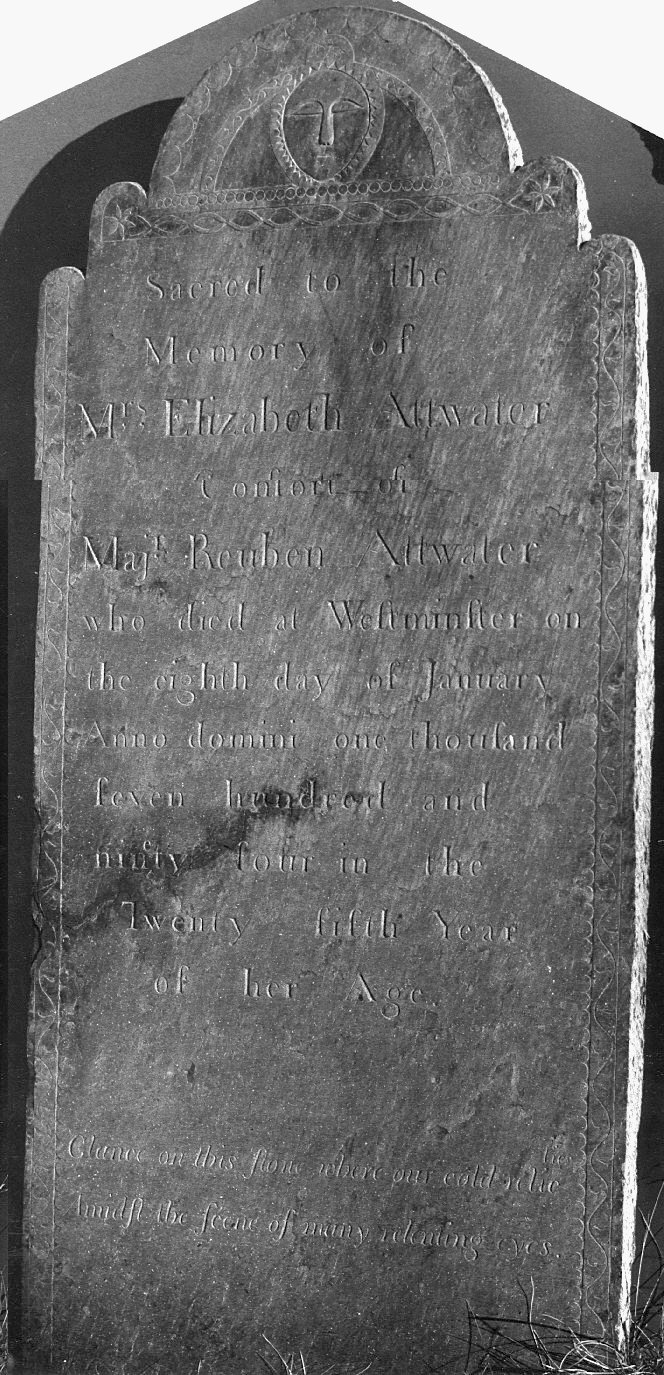 Sacred to the
Memory of
Mrs. Elizabeth Attwater
Conſort of
Majr. Reuben Attwater
who died at Weſtminſter on
the eighth day of January
Anno domini one thouſand
ſeven hundred and
ninty four in the
Twenty fifth Year
of her Age.
Glance on this ſtone where our cold relic lies
Amidſt the ſcene of many relenting eyes.